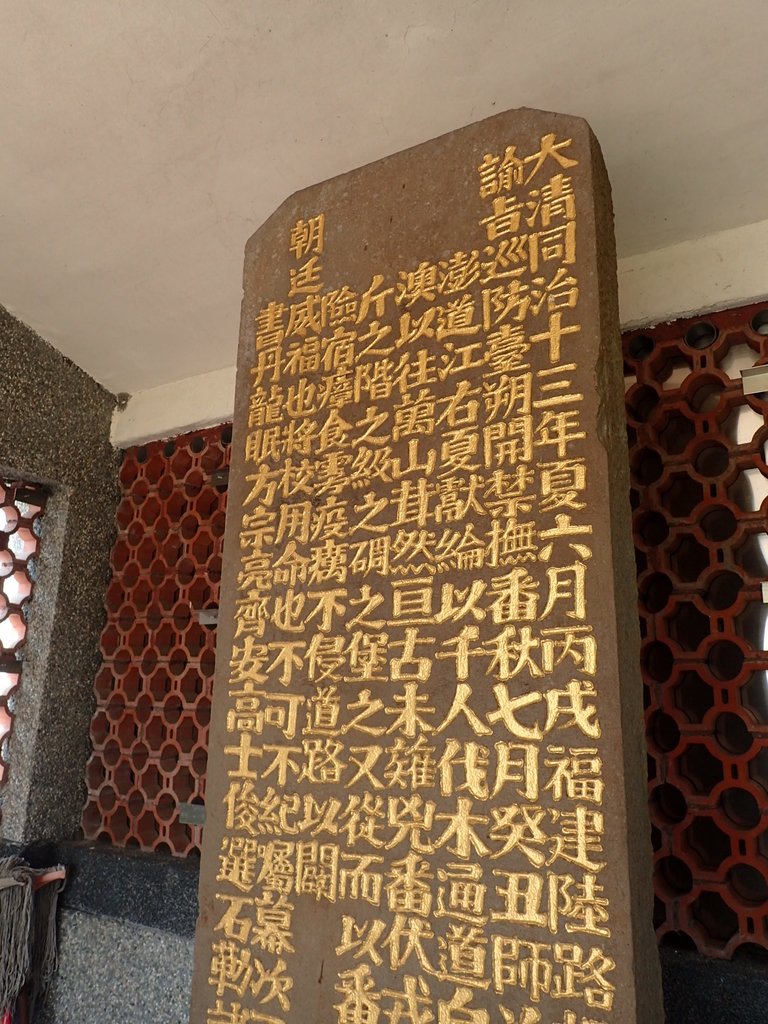 大清同治十三年夏六月丙戌福建陸路
諭旨巡防臺朔開禁撫番秋七月癸丑師
澎道江右夏獻綸以千人伐木通道自
澳以往萬山茸然亘古未薙兇番伏戎
斤之階之級之碉之堡之又從而以番
險宿瘴食霧疫癘不侵道路以闢
朝廷威福也將校用命也不可不紀屬幕次
書丹龍眠方宗亮齊安高士俊選石勒